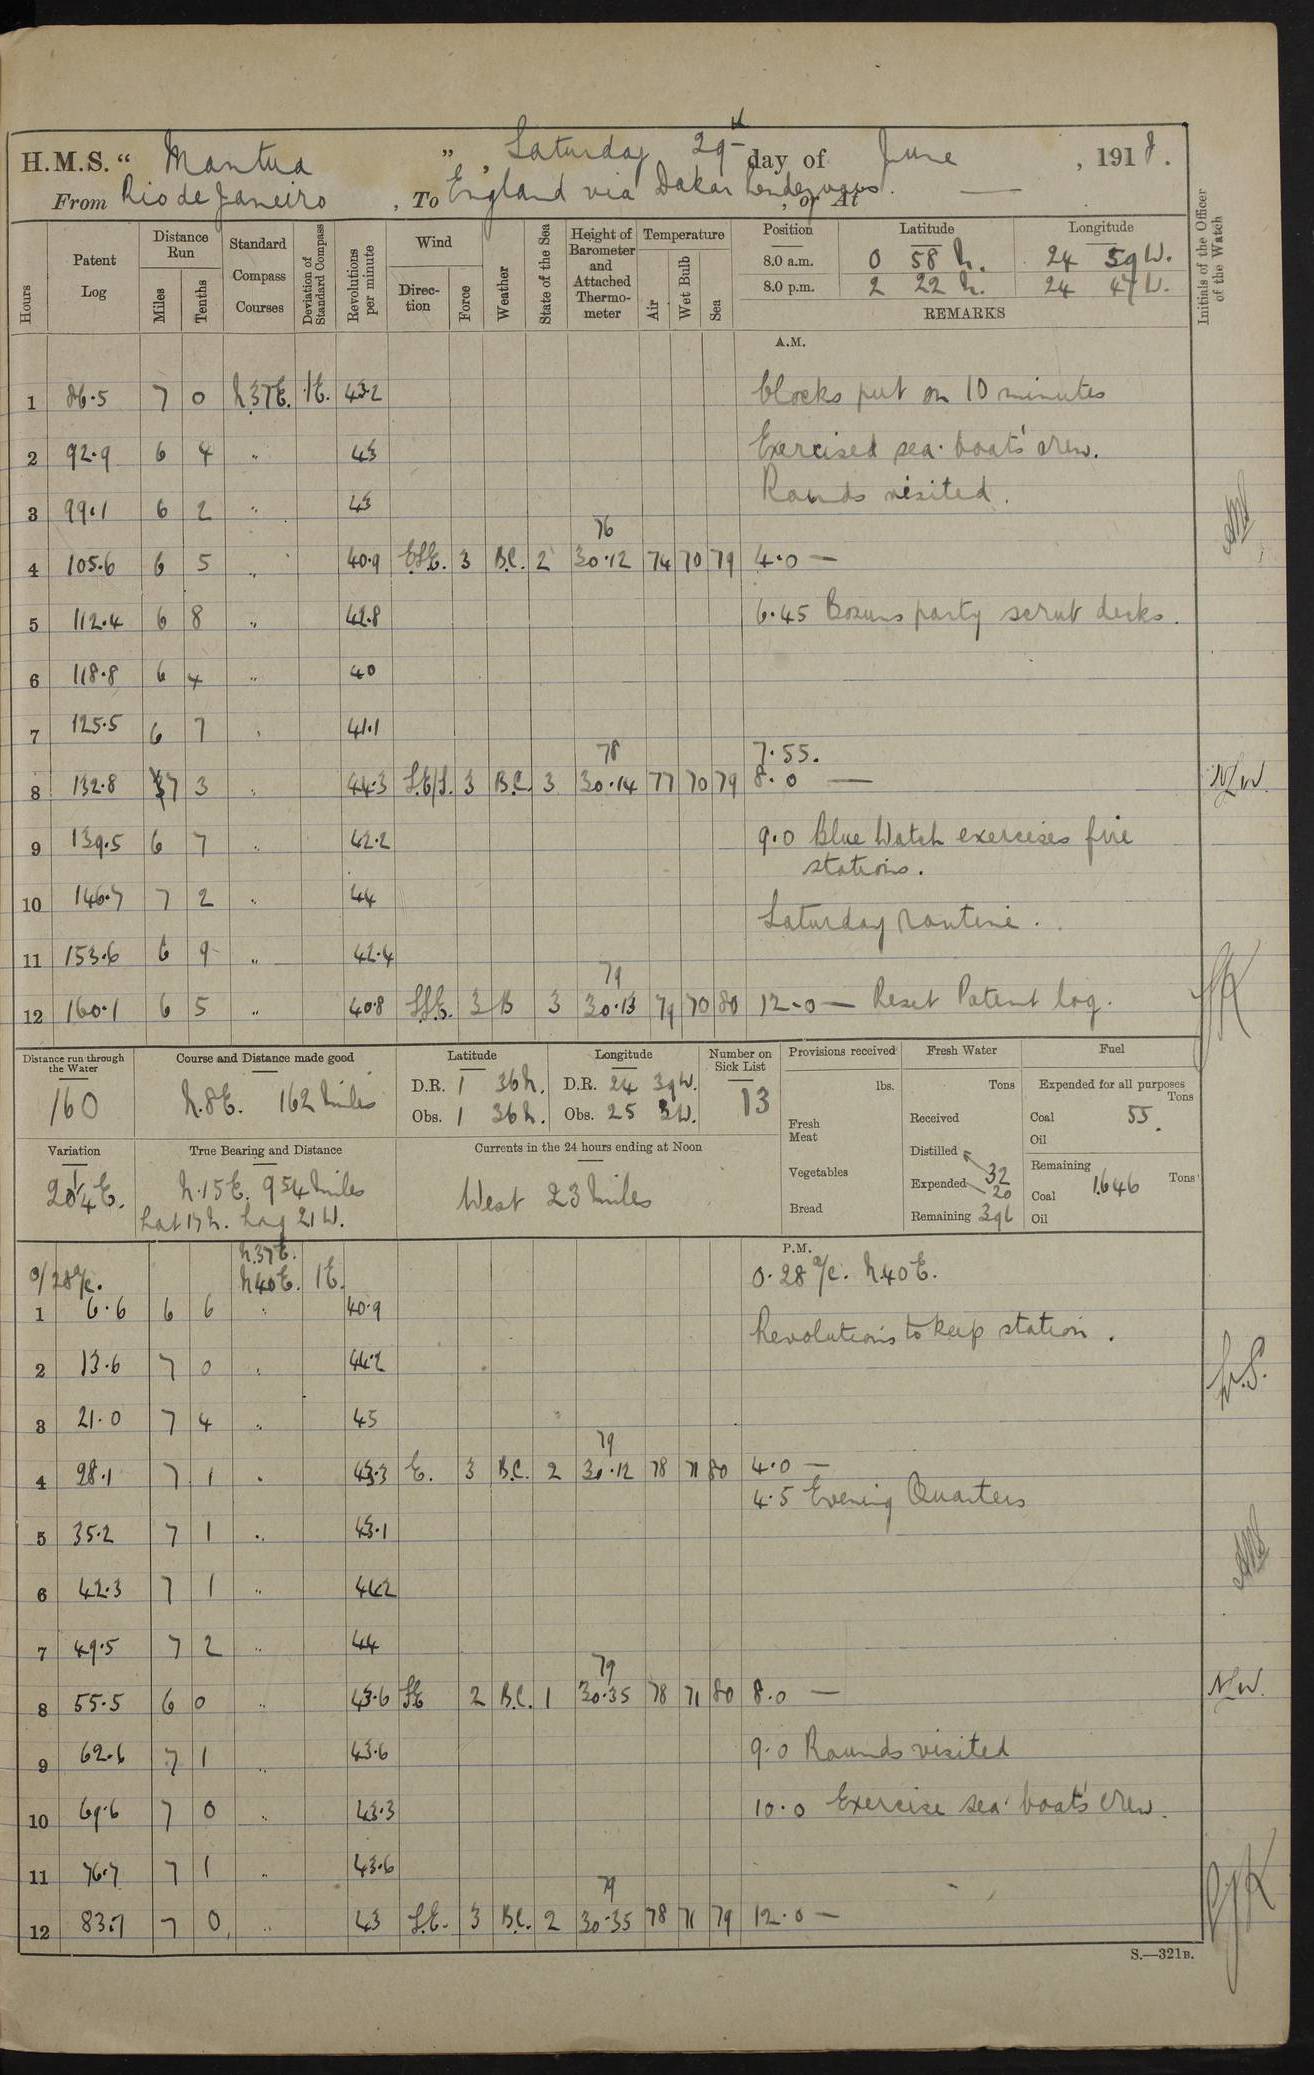 H.M.S. “ Mantua ”, Saturday 29th day of June, 1918.
From Rio de Janeiro, To England via Dakar Rendezvous., or At —
Hours
Patent Log
Distance Run
Miles
Tenths
Standard Compass Courses
Deviation of Standard Compass
Revolutions per minute
Wind
Direction
Force
Weather
State of the Sea
Height of Barometer and Attached Thermometer
Temperature
Air
Wet Bulb
Sea
Position Latitude Longitude
8.0 a.m. 0 58 N. 24 59 W.
8.0 p.m. 2 22 N. 24 47 W.
REMARKS
Initials of the Officer of the Watch
A.M.
1 86.5 7 0 N37E. 1E. 43.2 Clocks put on 10 minutes
2 92.9 6 4 " 43 Exercised sea boat's crew.
3 99.1 6 2 " 43 Rounds visited.
76
4 105.6 6 5 " 40.9 ESE. 3 B.C. 2 30.12 74 70 79 4.0 —
5 112.4 6 8 " 42.8 6.45 Bosuns party scrub decks.
6 118.8 6 4 " 40
7 125.5 6 7 " 41.1
78 7.55.
8 132.8 7 3 " 44.3 S.E/S. 3 B.C. 3 30.14 77 70 79 8.0 — N.W.
9 139.5 6 7 " 42.2 9.0 Blue Watch exercises fire
stations.
10 146.7 7 2 " 44 Saturday routine.
11 153.6 6 9 " 42.4
79
12 160.1 6 5 " 40.8 SSE. 3 B 3 30.13 79 70 80 12.0 — Reset Patent log.
Distance run through the Water
160
Course and Distance made good
N.8E. 162 Miles
Latitude
D.R. 1 36 N.
Obs. 1 36 N.
Longitude
D.R. 24 39 W.
Obs. 25 3 W.
Number on Sick List
13
Provisions received
lbs.
Fresh Meat
Vegetables
Bread
Fresh Water
Tons
Received
Distilled 32
Expended 20
Remaining 396
Fuel
Expended for all purposes
Tons
Coal 55.
Oil
Remaining
Coal 1646 Tons
Oil
Variation
20 1/4 E.
True Bearing and Distance
N.15E. 954 Miles
Lat 17 N. Long 21 W.
Currents in the 24 hours ending at Noon
West 23 Miles
P.M.
N.37E.
0/28 a/c. N40E. 1E. 0.28 a/c. N40E.
1 6.6 6 6 " 40.9 Revolutions to keep station.
2 13.6 7 0 " 44.2
3 21.0 7 4 " 45
79
4 28.1 7 1 " 43.3 E. 3 B.C. 2 30.12 78 71 80 4.0 —
4.5 Evening Quarters
5 35.2 7 1 " 43.1
6 42.3 7 1 " 44.2
7 49.5 7 2 " 44
79
8 55.5 6 0 " 43.6 SE 2 B.C. 1 30.35 78 71 80 8.0 — N.W.
9 62.6 7 1 " 43.6 9.0 Rounds visited
10 69.6 7 0 " 43.3 10.0 Exercise sea boat's crew.
11 76.7 7 1 " 43.6
79
12 83.7 7 0 " 43 S.E. 3 B.C. 2 30.35 78 71 79 12.0 —
S.—321B.